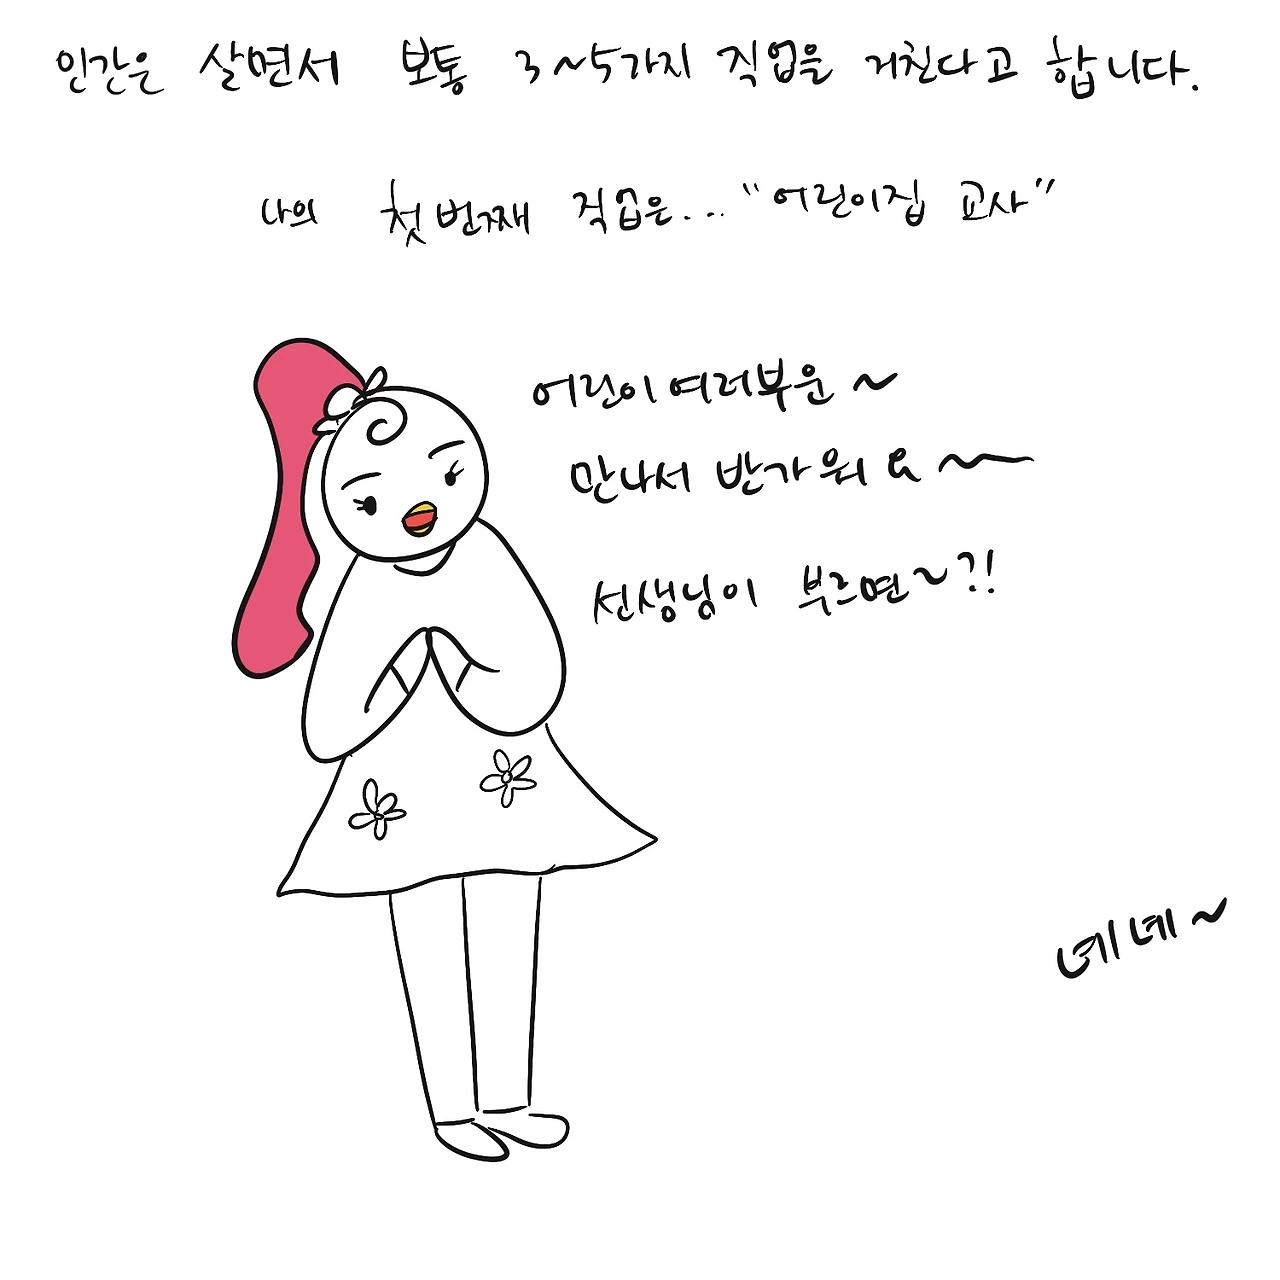 인간은 살면서 보통 3~5가지 직업을 거친다고 합니다.
나의 첫번째 직업은... "어린이집 교사"
어린이 여러부운~
만나서 반가워요~
선생님이 부르면~?!
녜녜~